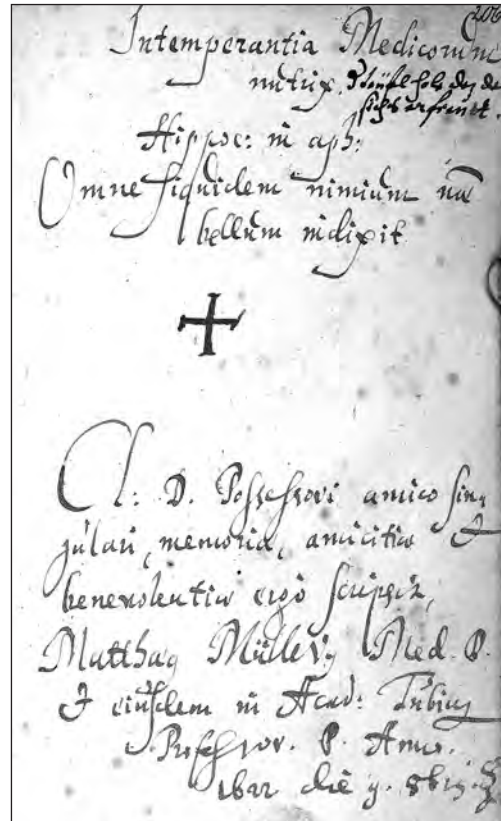 206
Intemperantia Medicorum
nutrix
Hippoc: in aph:
Omne siquidem nimium
bellum indixit
Cl: D. Possessori amico sin
gulari, memoria, amicitiæ &
benevolentiæ ergo scripsit,
Matthæꝰ Müllerꝰ Med. D.
& eiusdem in Acad: Tubing
Professor. P. Anno.
1622 die